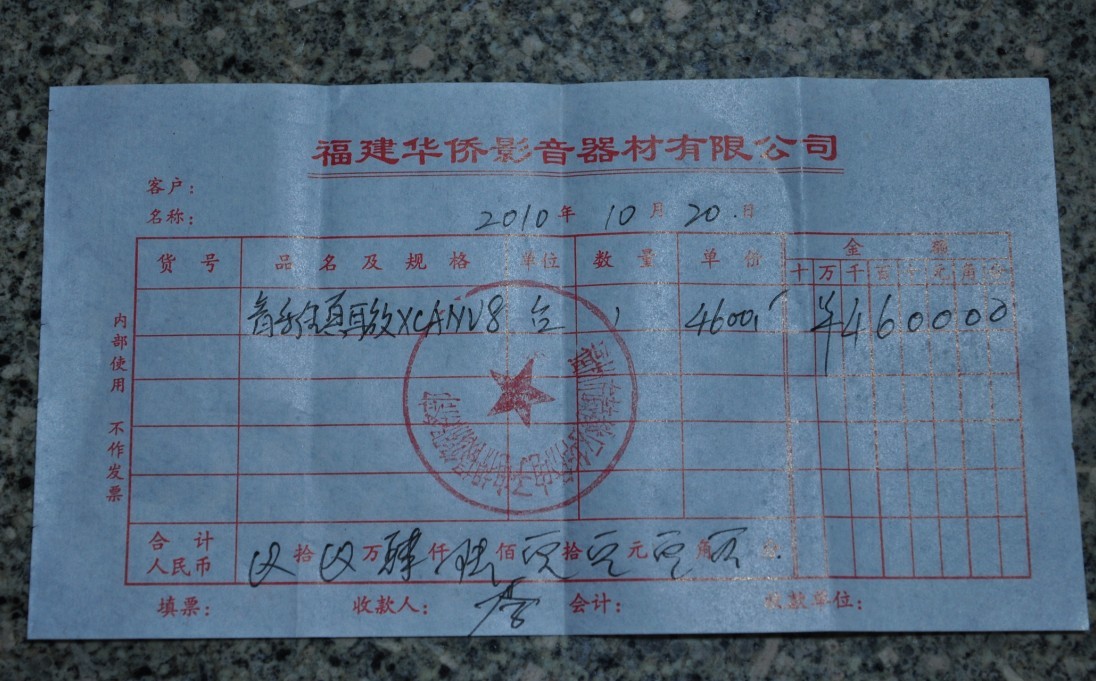 福建华侨影音器材有限公司
客户:
名称: 2010年 10月 20日
货号 品名及规格 单位 数量 单价 金额
十 万 千 百 十 元 角 分
音乐传真 XCANV8 台 1 4600 ¥460000
内部使用 不作发票
合计人民币 拾 万肆仟陆佰零拾零元零角零分
填票: 收款人: 会计: 收款单位: